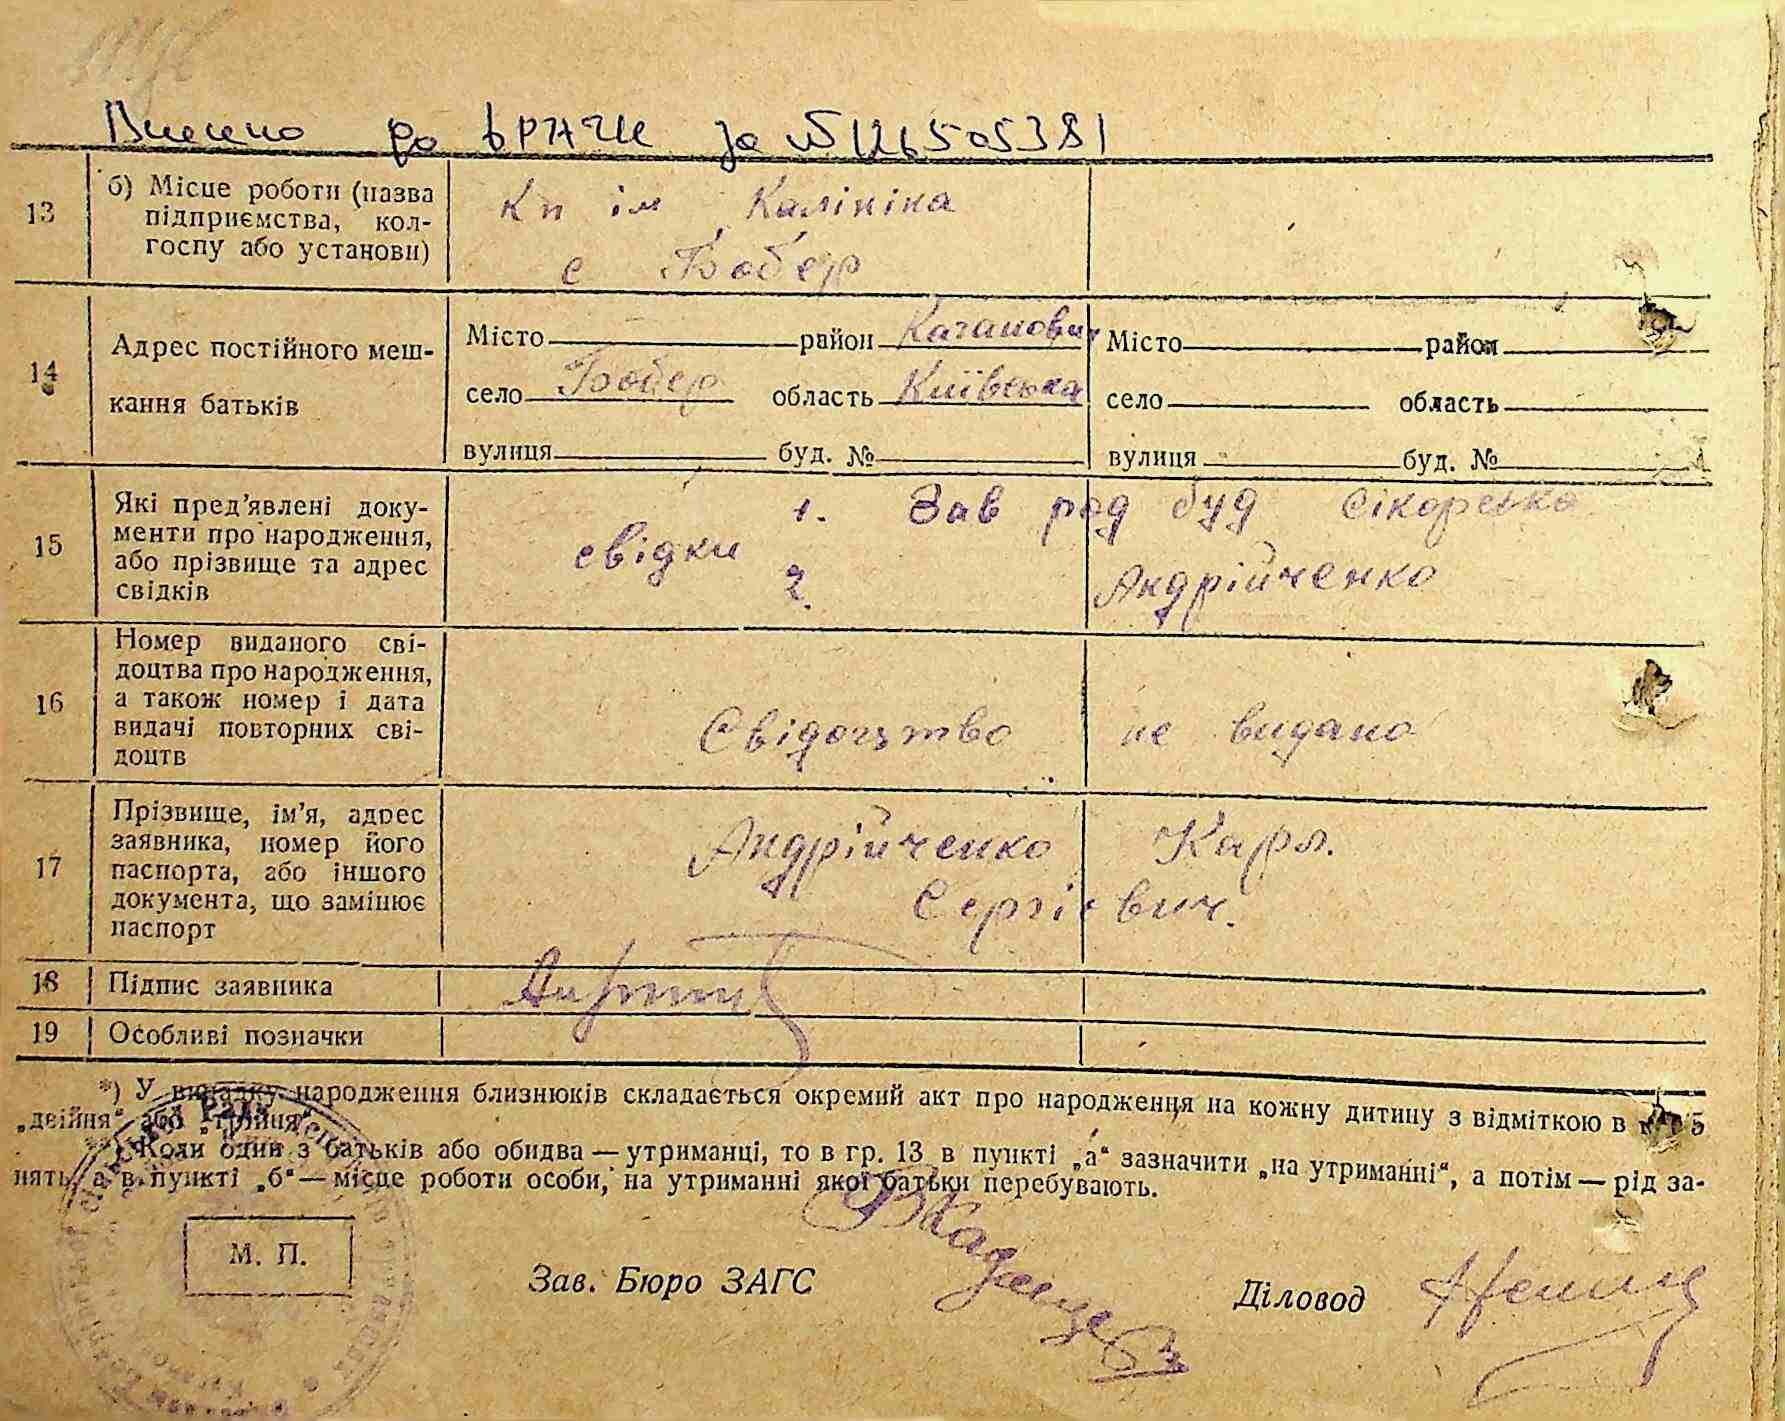 Внесено до ВРАЦС за №126505381
13 б) Місце роботи (назва підприємства, колгоспу або установи)
Кп ім Калініна
с Бобер
14 Адрес постійного мешкання батьків
Місто район Каганович Місто район
село Бобер область Київська село область
вулиця буд. № вулиця буд. №
15 Які пред'явлені документи про народження, або прізвище та адрес свідків
свідки
1. Зав род буд Сікорська
2. Андрійченко
16 Номер виданого свідоцтва про народження, а також номер і дата видачі повторних свідоцтв
Свідоцтво не видано
17 Прізвище, ім'я, адрес заявника, номер його паспорта, або іншого документа, що замінює паспорт
Андрійченко Карл.
Сергієвич.
18 Підпис заявника
19 Особливі позначки
*) У випадку народження близнюків складається окремий акт про народження на кожну дитину з відміткою в 5
„двійня" або „трійня"
**) Коли один з батьків або обидва — утриманці, то в гр. 13 в пункті „а" зазначити „на утриманні", а потім — рід за-
нять, а в пункті „б" — місце роботи особи, на утриманні якої батьки перебувають.
М. П.
Зав. Бюро ЗАГС
Діловод